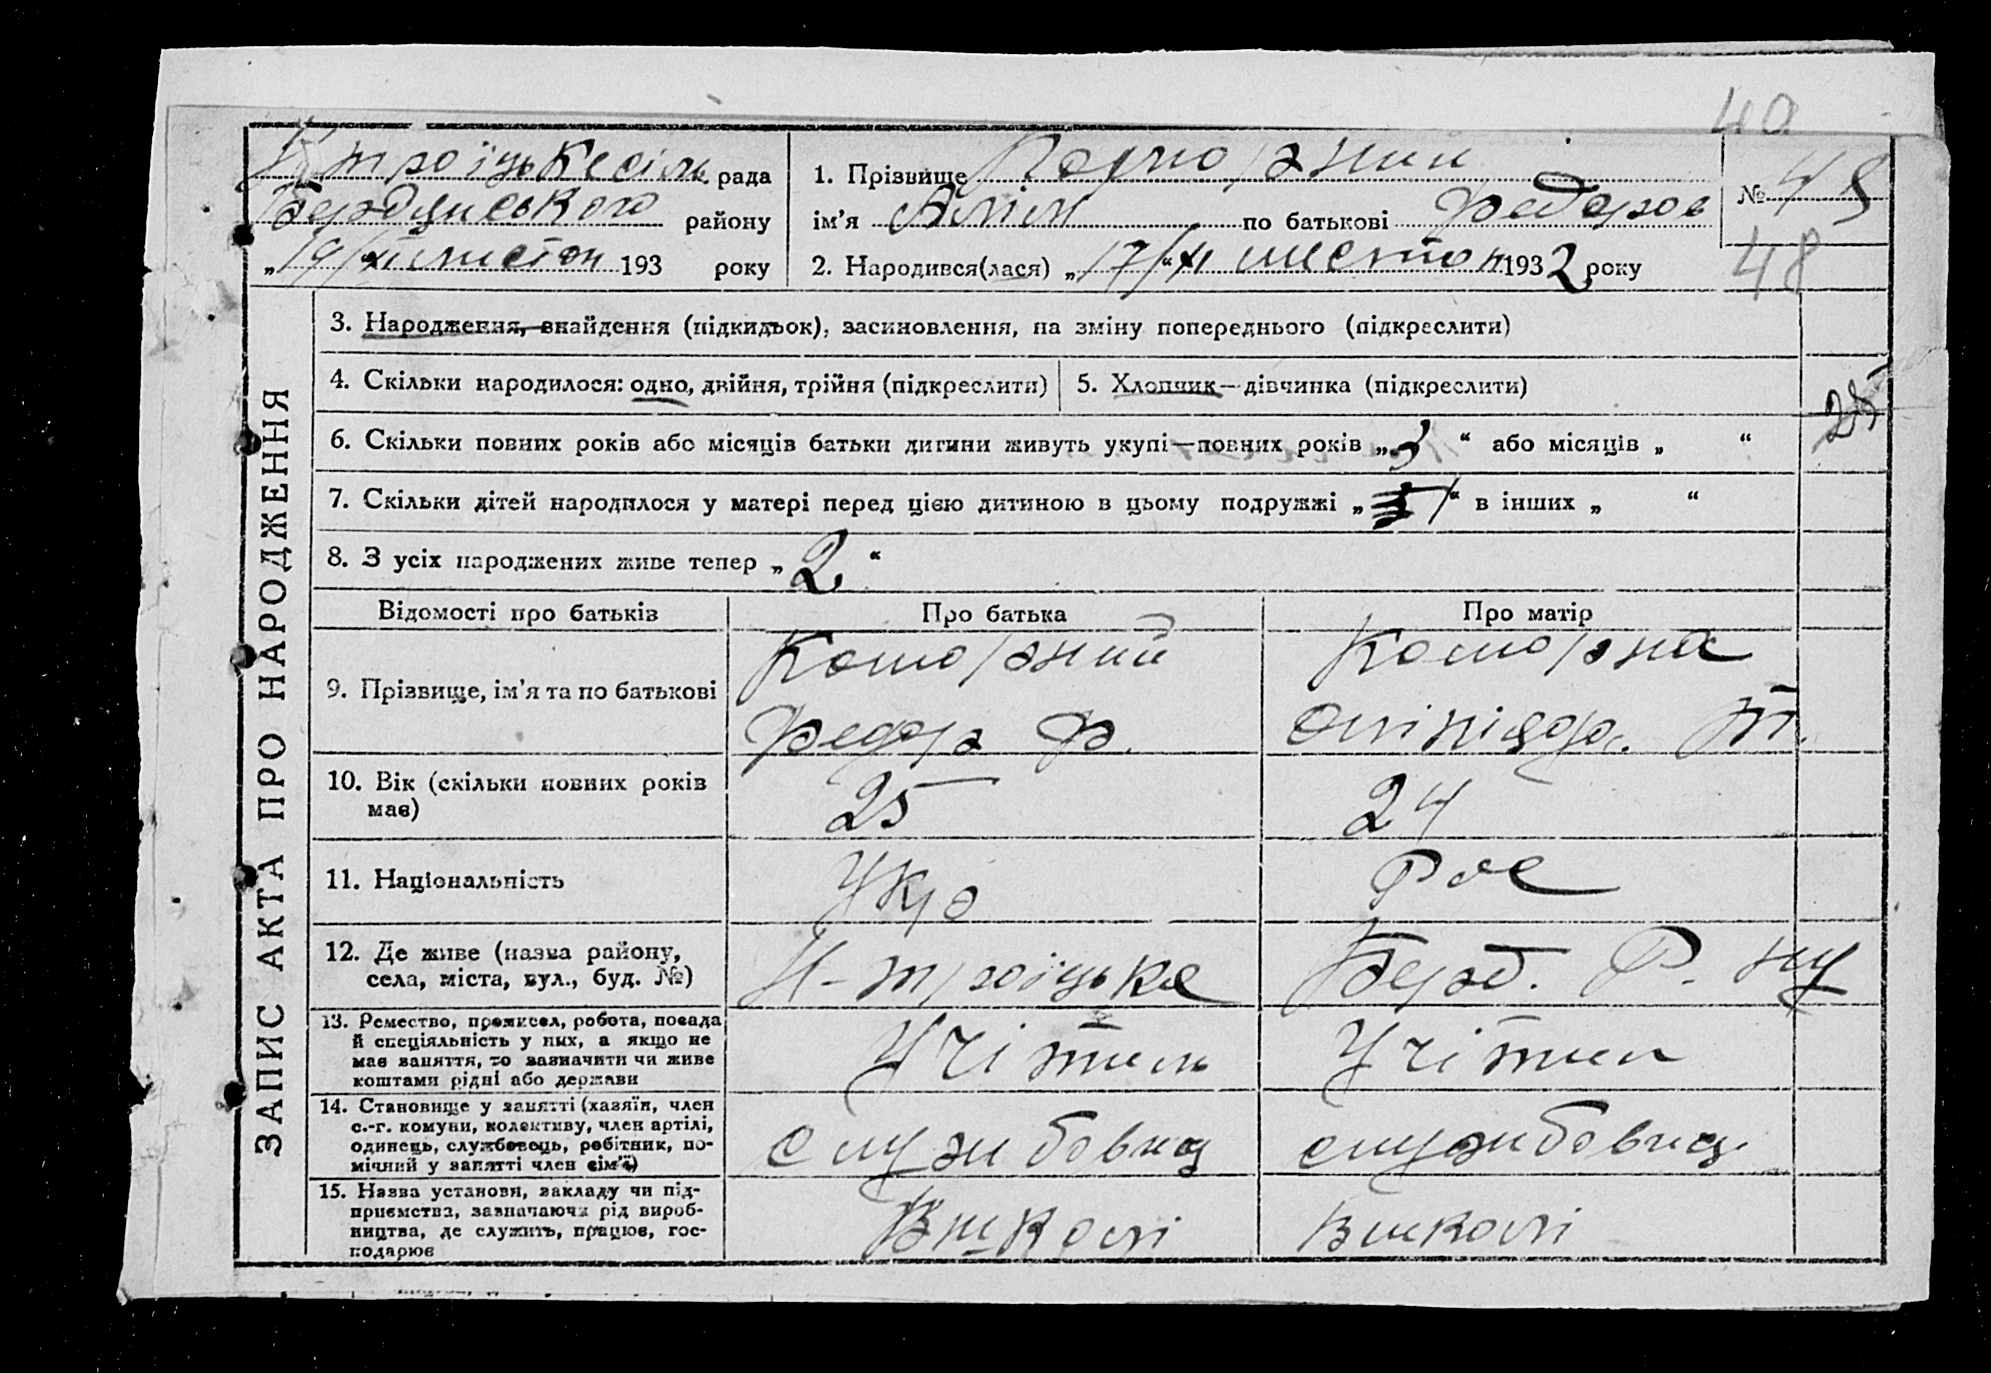 40
Н троїцьке сіль. рада
Бердянського району
„19/XI листоп 193 року
1. Прізвище Коморний
ім'я по батькові Федоров
2. Народився(лася) „17/XI листоп 1932 року
№ 48
48
ЗАПИС АКТА ПРО НАРОДЖЕННЯ
3. Народження, знайдення (підкидьок), засиновлення, на зміну попереднього (підкреслити)
4. Скільки народилося: одно, двійня, трійня (підкреслити)
5. Хлопчик—дівчинка (підкреслити)
25
6. Скільки повних років або місяців батьки дитини живуть укупі—повних років „3“ або місяців „ “
7. Скільки дітей народилося у матері перед цією дитиною в цьому подружжі „1“ в інших „ “
8. З усіх народжених живе тепер „2“
Відомості про батьків Про батька Про матір
9. Прізвище, ім'я та по батькові
Коморний Коморна
Федор Ф. Т.
10. Вік (скільки повних років має) 25 24
11. Національність Укр Рос
12. Де живе (назва району, села, міста, вул., буд. №)
Н-троїцьке Берд. Р-ну
13. Ремество, промисел, робота, посада
й спеціяльність у них, а якщо не
має заняття, то зазначити чи живе
коштами рідні або держави
Учітиль Учітил
14. Становище у занятті (хазяїн, член
с.-г. комуни, колективу, член артілі,
одинець, службовець, робітник, по-
мічний у занятті член сім'ї)
службовиц службовиц
15. Назва установи, закладу чи під-
приємства, зазначаючи рід вироб-
ництва, де служить, працює, гос-
подарює
Вшколі Вшколі